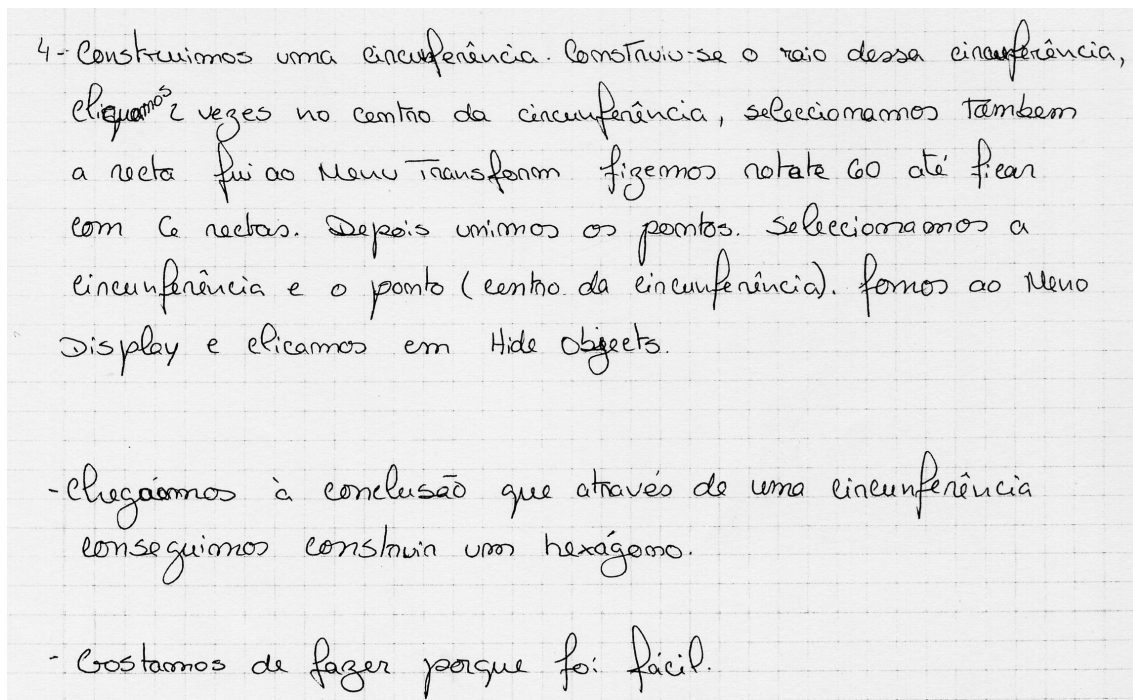 4- Construimos uma circunferência. Construiu-se o raio dessa circunferência,
cliquamos 2 vezes no centro da circunferência, seleccionamos também
a recta fui ao Menu Transform fizemos rotate 60 até ficar
com 6 rectas. Depois unimos os pontos. Seleccionamos a
circunferência e o ponto (centro da circunferência). fomos ao Meno
Display e clicamos em Hide Objects.
- Chegáamos à conclusão que através de uma circunferência
conseguimos construir um hexágono.
- Gostamos de fazer porque foi fácil.